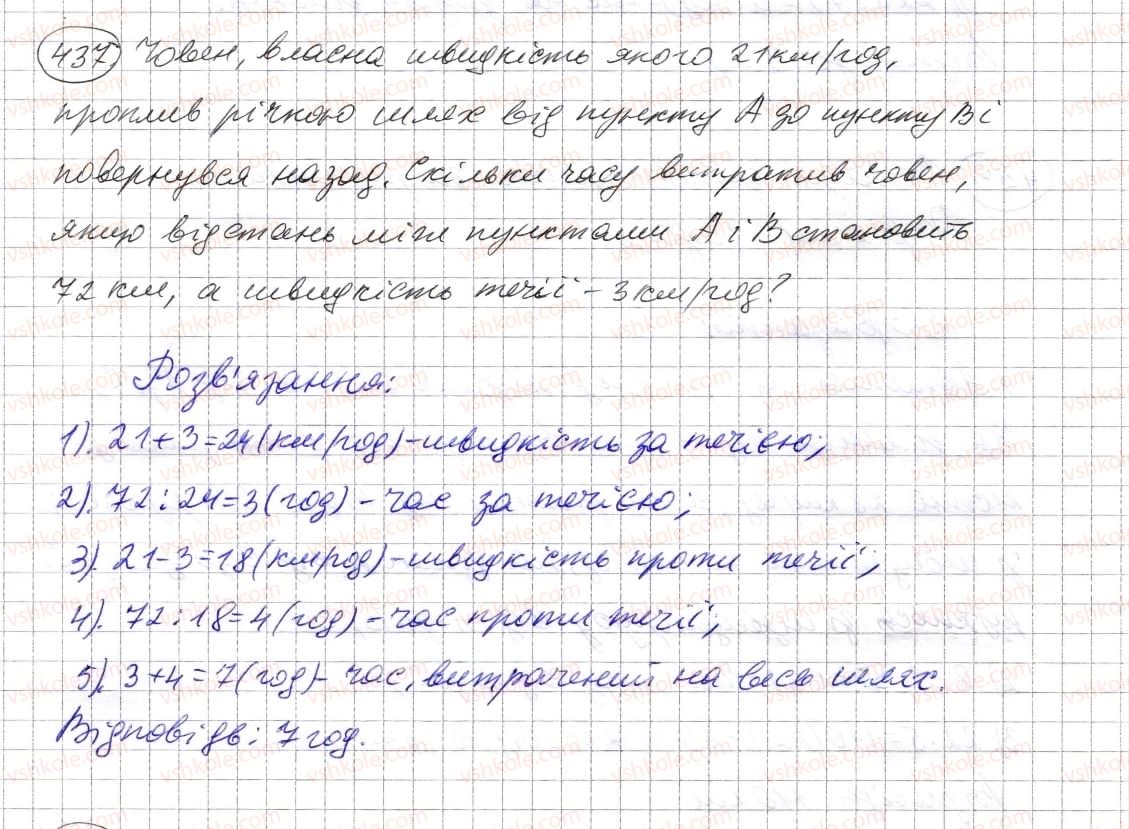 437) Човен, власна швидкість якого 21 км/год,
проплив річкою шлях від пункту А до пункту В і
повернувся назад. Скільки часу витратив човен,
якщо відстань між пунктами А і В становить
72 км, а швидкість течії - 3 км/год?
Розв'язання:
1). 21 + 3 = 24 (км/год) - швидкість за течією;
2). 72 : 24 = 3 (год) - час за течією;
3). 21 - 3 = 18 (км/год) - швидкість проти течії;
4). 72 : 18 = 4 (год) - час проти течії;
5). 3 + 4 = 7 (год) - час, витрачений на весь шлях.
Відповідь: 7 год.